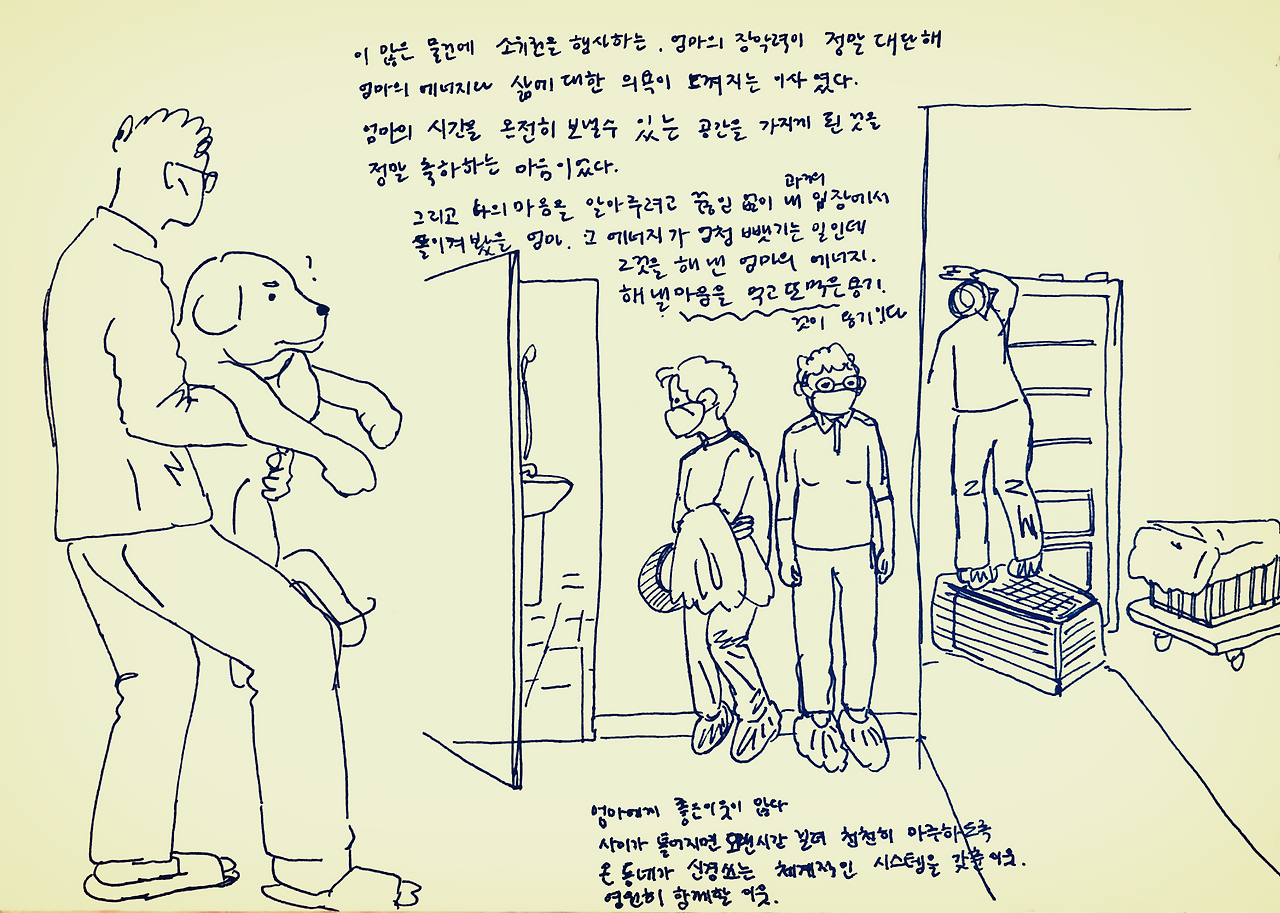 이 많은 물건에 소유권을 행사하는. 엄마의 장악력이 정말 대단해
엄마의 에너지나 삶에 대한 의욕이 느껴지는 이사였다.
엄마의 시간을 온전히 보낼수 있는 공간을 가지게 된 것을
정말 축하하는 마음이었다.
과거
그리고 나의 마음을 알아주려고 끊임 없이 내 입장에서
돌이켜봤을 엄마. 그 에너지가 엄청 뺏기는 일인데
그것을 해 낸 엄마의 에너지.
해낼 마음을 먹고 또 먹은 용기.
꼿이 용기있다
엄마에게 좋은이웃이 많다
사이가 틀어지면 오랜시간 걸려 첩첩히 마주하도록
온 동네가 신경쓰는 체계적인 시스템을 갖춘 이웃.
영원히 함께할 이웃.